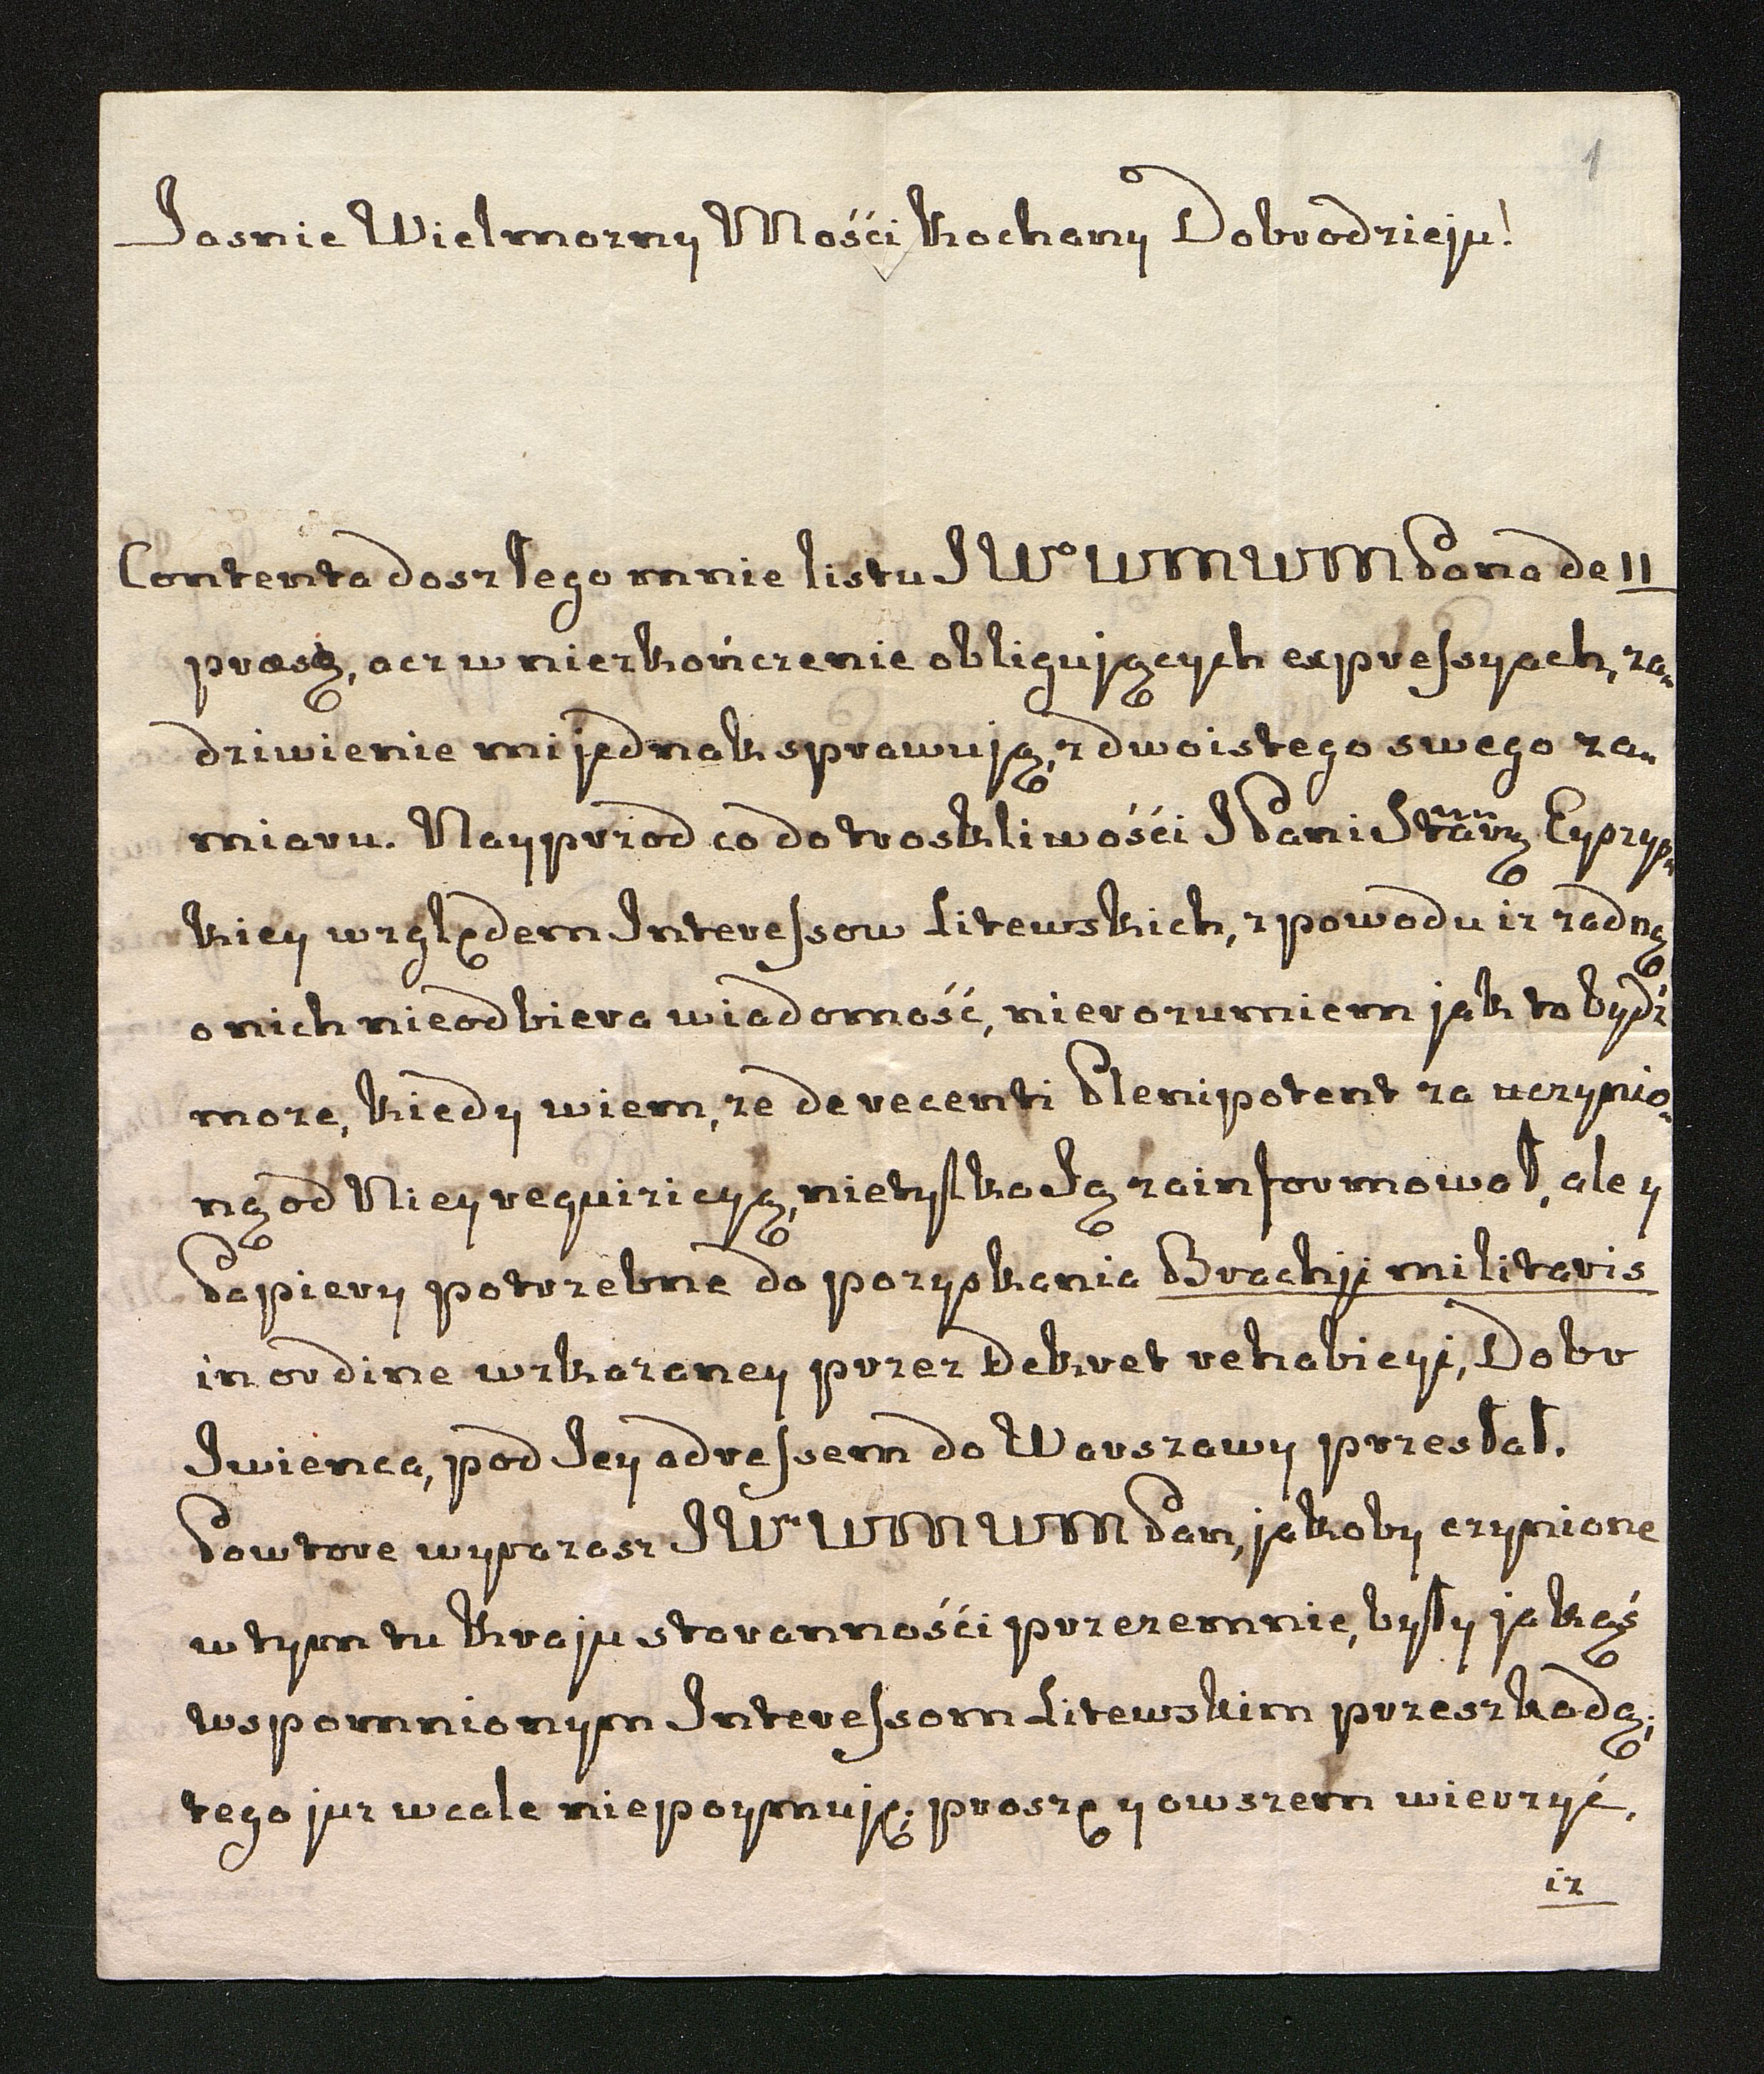 1
Jasnie Wielmozny Mośći Kochany Dobrodzieju!
Contenta doszłego mnie listu JWo WM WM Pana de 11
præsę, acz w niezkończenie obligujących expressyach, za„
dziwienie mi jednak sprawują, z dwoistego swego za„
miaru. Nayprzod co do troskliwości JPani Starę Cyprys„
kiey względem Interessow Litewskich, z powodu iz zadną
o nich nieodbiera wiadomość, nierozumiem jak to bydź
moze, kiedy wiem, ze de recenti Plenipotent za uczynio„
ną od Niey requizicyą, nietylko Ją zainformował, ale y
Papiery potrzebne do pozyskania Brachji militaris
in ordine wskazaney przez Dekret rehabicyi, Dobr
Iwienca, pod Jey adressem do Warszawy przesłał.
Powtore wyrazasz JWr WM WM Pan, jakoby czynione
w tym tu Kraju starannośći przezemnie, były jakąś
wspomnionym Interessom Litewskim przeszkodą;
tego juz wcale niepoymuję; proszę y owszem wierzyć,
iz